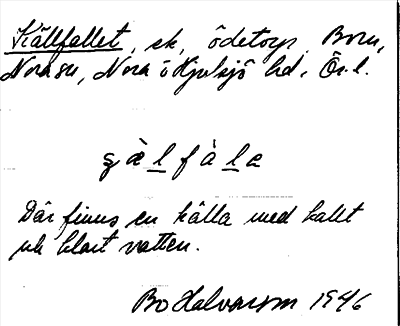 Källfallet, sk, ödetorp, Born,
Nora sn, Nora o Hjulsjö hd, Ör. l.
gälfàle
Där finns en källa med kallt
och klart vatten.
Bo Halvarson 1946